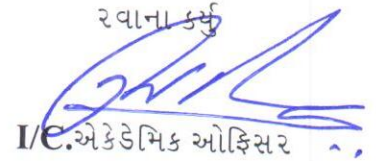 રવાના કર્યુ
I/C.એકેડેમિક ઓફિસર